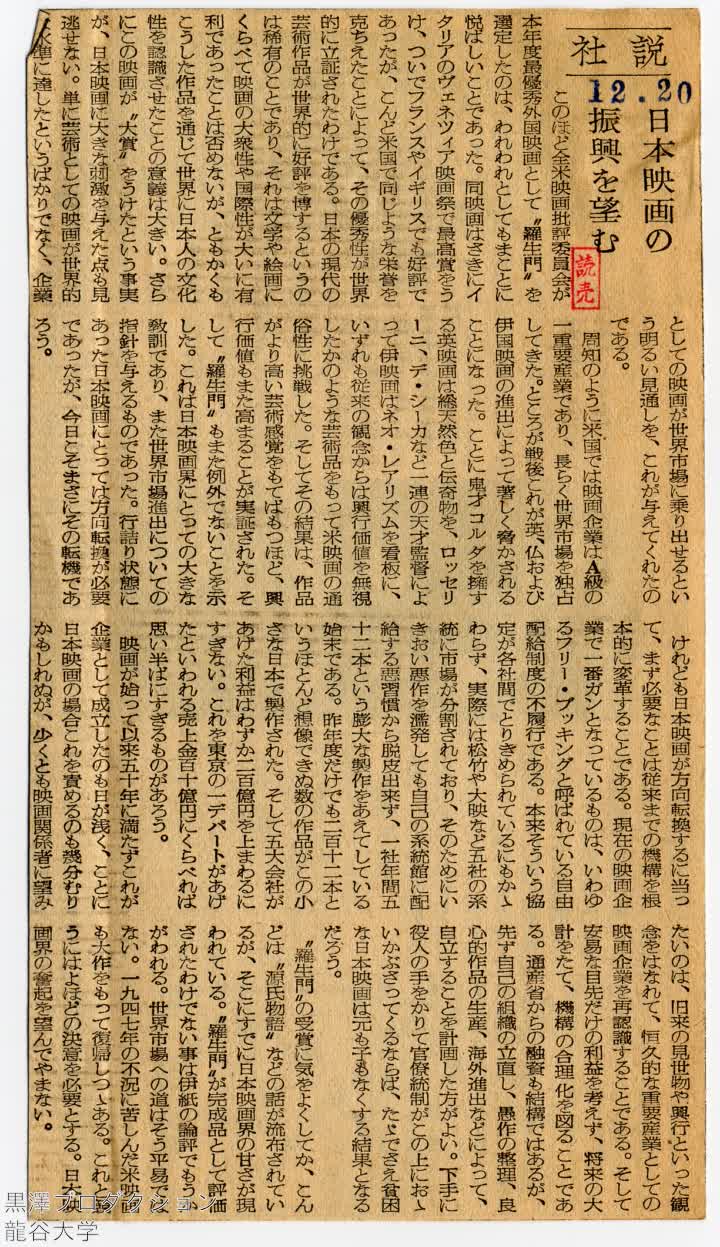 社説
12.20
日本映画の
振興を望む
読売
このほど全米映画批評委員会が
本年度最優秀外国映画として〝羅生門〟を
選定したのは、われわれとしてもまことに
悦ばしいことであった。同映画はさきにイ
タリアのヴェネツィア映画祭で最高賞をう
け、ついでフランスやイギリスでも好評で
あったが、こんど米国で同じような栄誉を
克ちえたことによって、その優秀性が世界
的に立証されたわけである。日本の現代の
芸術作品が世界的に好評を博するというの
は稀有のことであり、それは文学や絵画に
くらべて映画の大衆性や国際性が大いに有
利であったことは否めないが、ともかくも
こうした作品を通じて世界に日本人の文化
性を認識させたことの意義は大きい。さら
にこの映画が〝大賞〟をうけたという事実
が、日本映画に大きな刺激を与えた点も見
逃せない。単に芸術としての映画が世界的
水準に達したというばかりでなく、企業
としての映画が世界市場に乗り出せるとい
う明るい見通しを、これが与えてくれたの
である。
周知のように米国では映画企業はA級の
一重要産業であり、長らく世界市場を独占
してきた。ところが戦後これが英、仏および
伊国映画の進出によって著しく脅かされる
ことになった。ことに鬼才コルダを擁す
る英映画は総天然色と伝奇物を、ロッセリ
ーニ、デ・シーカなど一連の天才監督によ
って伊映画はネオ・レアリズムを看板に、
いずれも従来の観念からは興行価値を無視
したかのような芸術品をもって米映画の通
俗性に挑戦した。そしてその結果は、作品
がより高い芸術感覚をもてばもつほど、興
行価値もまた高まることが実証された。そ
して〝羅生門〟もまた例外でないことを示
した。これは日本映画界にとっての大きな
教訓であり、また世界市場進出についての
指針を与えるものであった。行詰り状態に
あった日本映画にとっては方向転換が必要
であったが、今日こそまさにその転機であ
ろう。
けれども日本映画が方向転換するに当っ
て、まず必要なことは従来までの機構を根
本的に変革することである。現在の映画企
業で一番ガンとなっているものは、いわゆ
るフリー・ブッキングと呼ばれている自由
配給制度の不履行である。本来そういう協
定が各社間でとりきめられているにもかゝ
わらず、実際には松竹や大映など五社の系
統に市場が分割されており、そのためにい
きおい悪作を濫発しても自己の系統館に配
給する悪習慣から脱皮出来ず、一社年間五
十二本という膨大な製作をあえてしている
始末である。昨年度だけでも二百十二本と
いうほとんど想像できぬ数の作品がこの小
さな日本で製作された。そして五大会社が
あげた利益はわずか二百億円を上まわるに
すぎない。これを東京の一デパートがあげ
たといわれる売上金百十億円にくらべれば
思い半ばにすぎるものがあろう。
映画が始って以来五十年に満たずこれが
企業として成立したのも日が浅く、ことに
日本映画の場合これを責めるのも幾分むり
かもしれぬが、少くとも映画関係者に望み
たいのは、旧来の見世物や興行といった観
念をはなれて、恒久的な重要産業としての
映画企業を再認識することである。そして
安易な目先だけの利益を考えず、将来の大
計をたて、機構の合理化を図ることであ
る。通産省からの融資も結構ではあるが、
先ず自己の組織の立直し、愚作の整理、良
心的作品の生産、海外進出などによって、
自立することを計画した方がよい。下手に
役人の手をかりて官僚統制がこの上におゝ
いかぶさってくるならば、たゞでさえ貧困
な日本映画は元も子もなくする結果となる
だろう。
〝羅生門〟の受賞に気をよくしてか、こん
どは〝源氏物語〟などの話が流布されてい
るが、そこにすでに日本映画界の甘さが現
われている。〝羅生門〟が完成品として評価
されたわけでない事は伊紙の論評でもうか
がわれる。世界市場への道はそう平易では
ない。一九四七年の不況に苦しんだ米映画
も大作をもって復帰しつゝある。これと競
うにはよほどの決意を必要とする。日本映
画界の奮起を望んでやまない。
黒澤プロダクション
龍谷大学